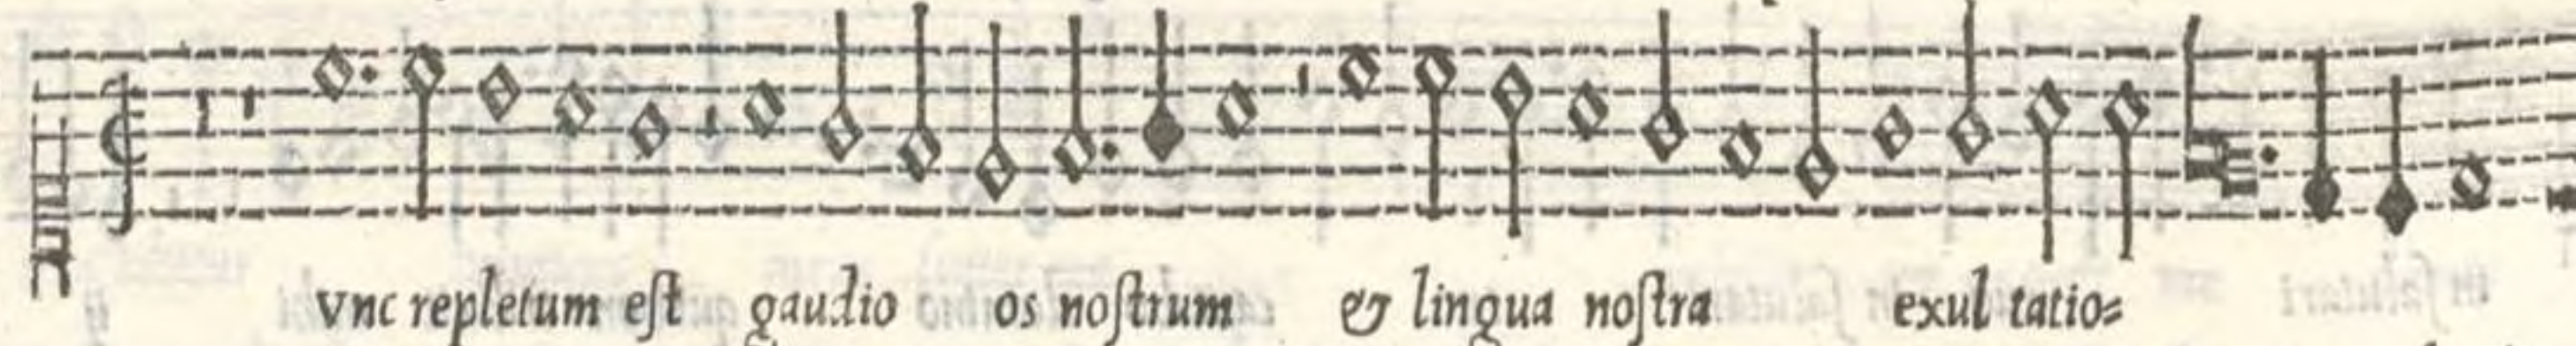 vnc repletum eſt gaudio os noſtrum & lingua noſtra exul tatio=